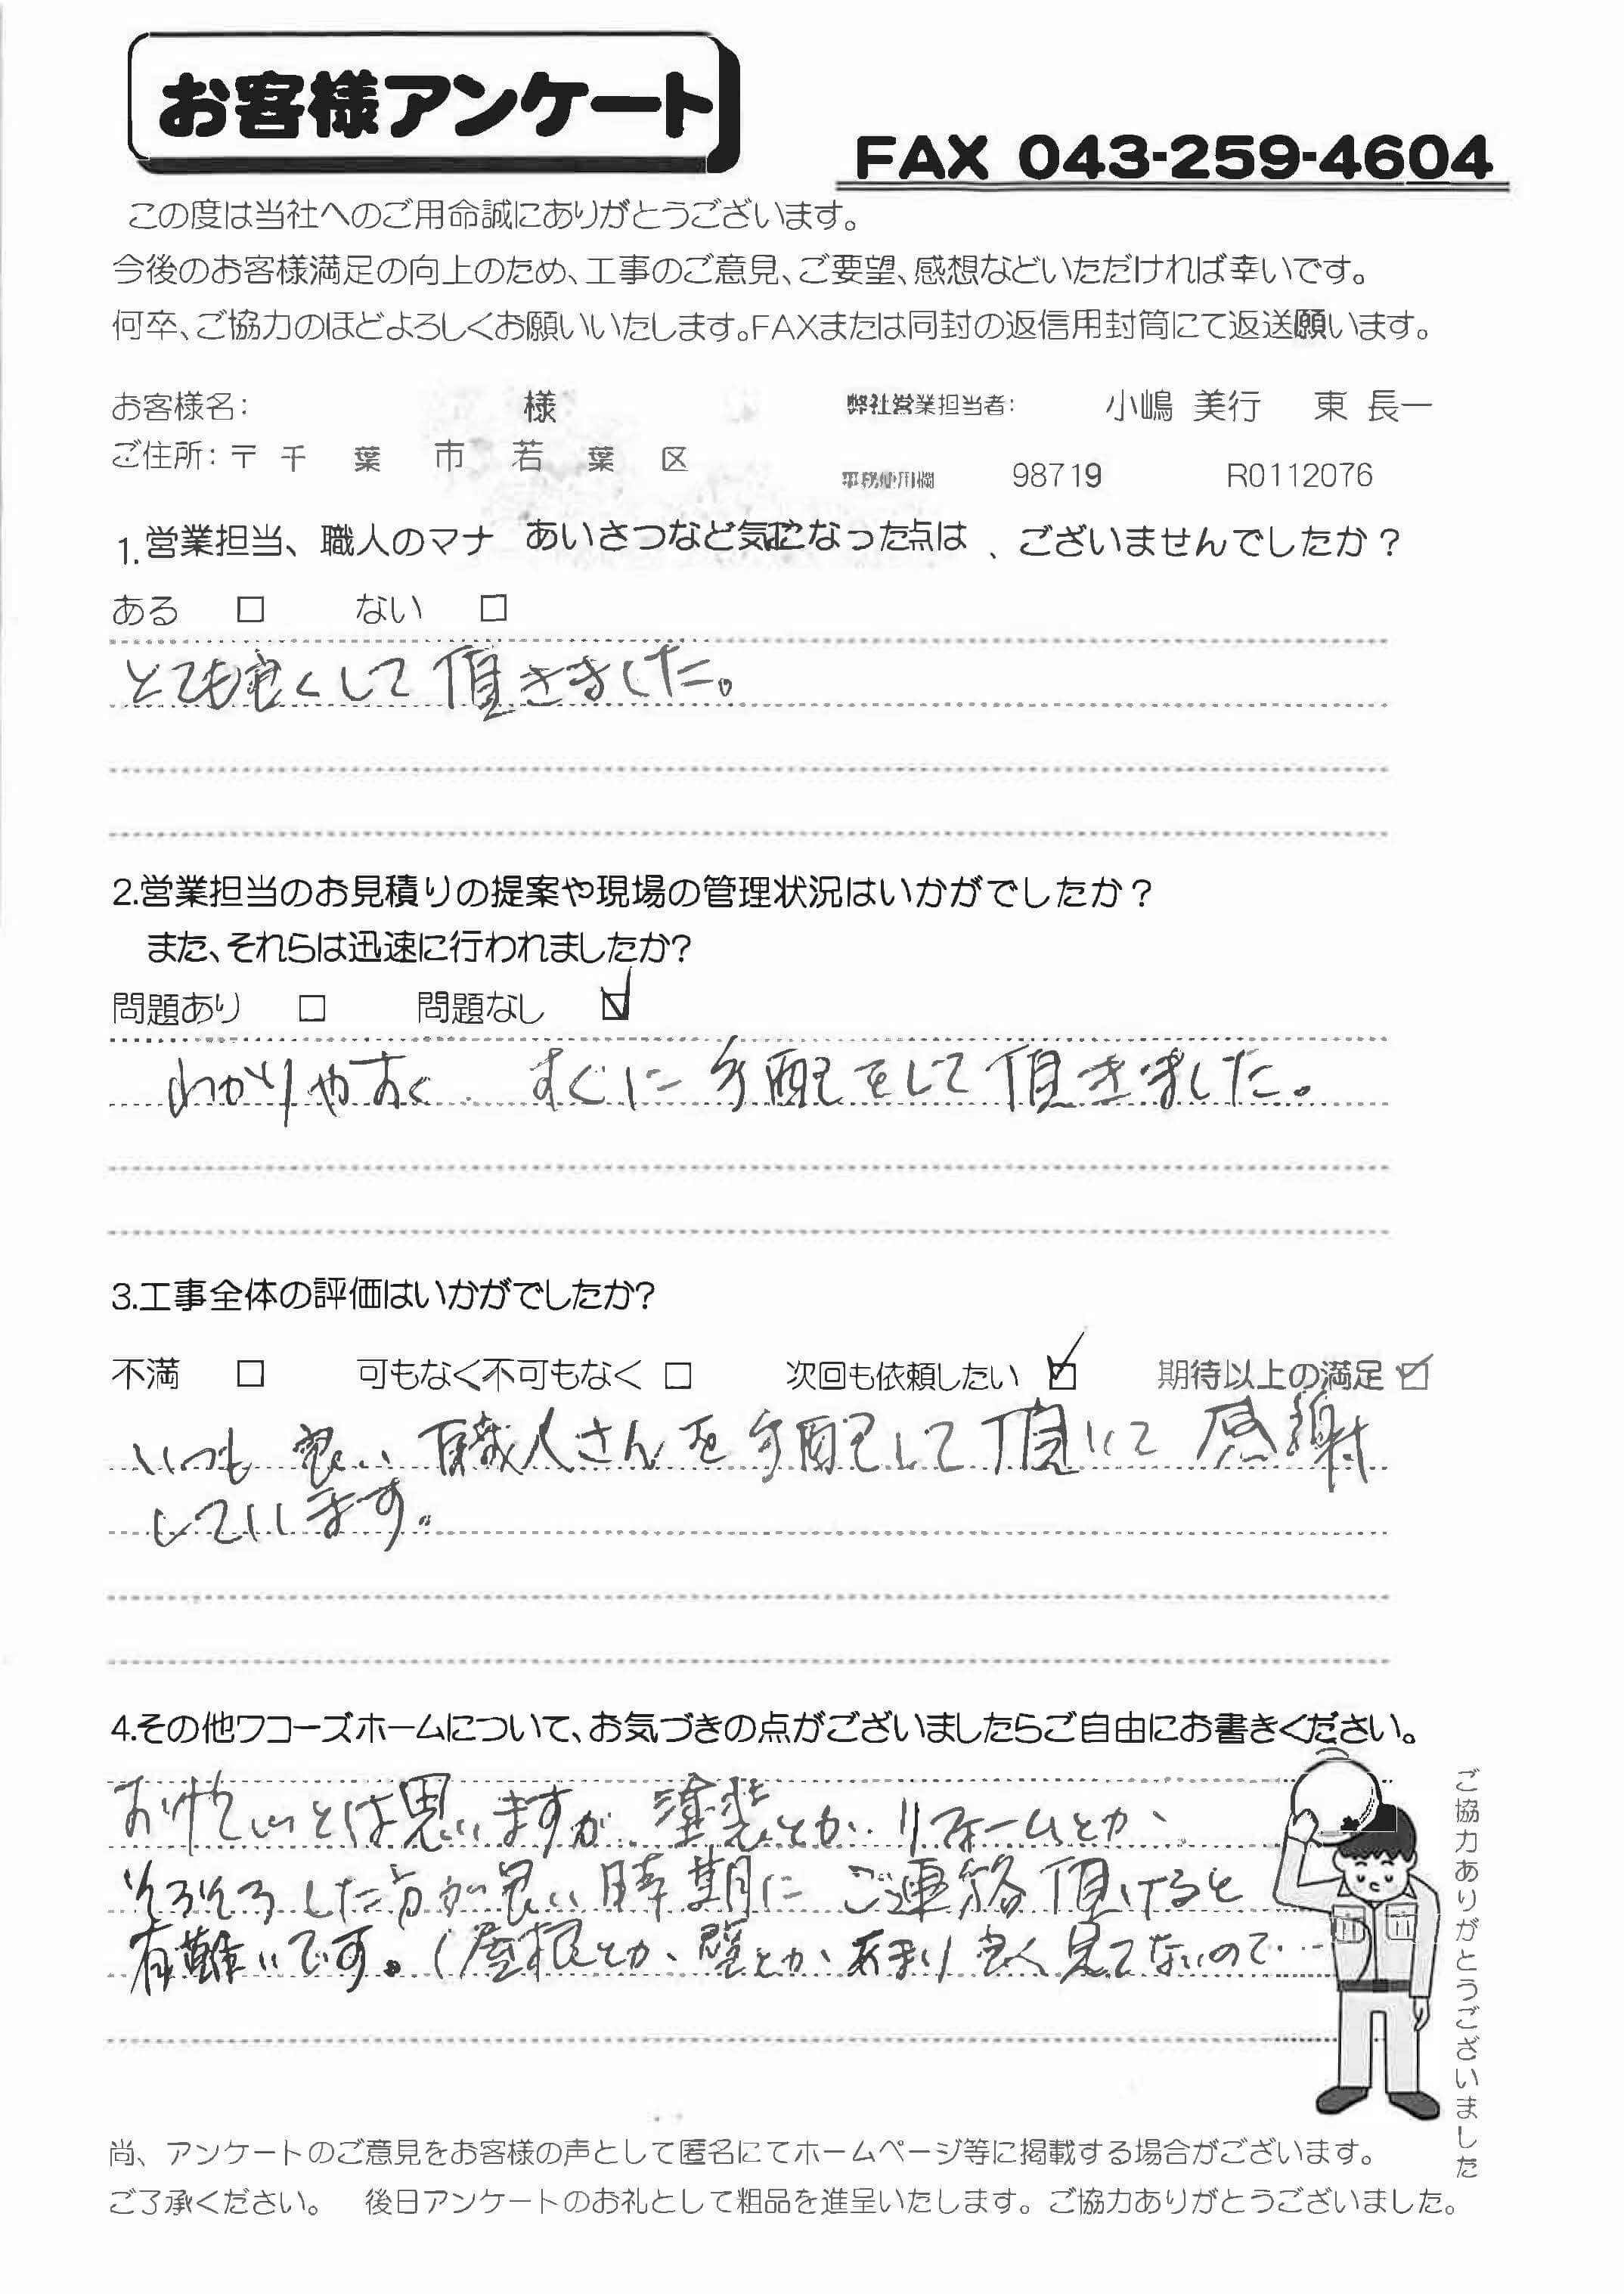 お客様アンケート
FAX 043-259-4604
この度は当社へのご用命誠にありがとうございます。
今後のお客様満足の向上のため、工事のご意見、ご要望、感想などいただければ幸いです。
何卒、ご協力のほどよろしくお願いいたします。FAXまたは同封の返信用封筒にて返送願います。
お客様名: 様 弊社営業担当者: 小嶋 美行 東 長一
ご住所: 〒 千 葉 市 若 葉 区
事務使用欄 98719 R0112076
1.営業担当、職人のマナ あいさつなど気になった点は 、ございませんでしたか?
ある □ ない □
とても良くして頂きました。
2.営業担当のお見積りの提案や現場の管理状況はいかがでしたか?
また、それらは迅速に行われましたか?
問題あり □ 問題なし ☑
わかりやすく すぐに手配をして頂きました。
3.工事全体の評価はいかがでしたか?
不満 □ 可もなく不可もなく □ 次回も依頼したい ☑ 期待以上の満足 ☑
いつも良い職人さんを手配して頂いて感謝
しています。
4.その他ワコーズホームについて、お気づきの点がございましたらご自由にお書きください。
お忙しいとは思いますが 塗装とか リフォームとか、
そろそろした方が良い時期に ご連絡頂けると
有難いです。(屋根とか、壁とか、あまり良く見てないので…
ご協力ありがとうございました
尚、アンケートのご意見をお客様の声として匿名にてホームページ等に掲載する場合がございます。
ご了承ください。 後日アンケートのお礼として粗品を進呈いたします。ご協力ありがとうございました。